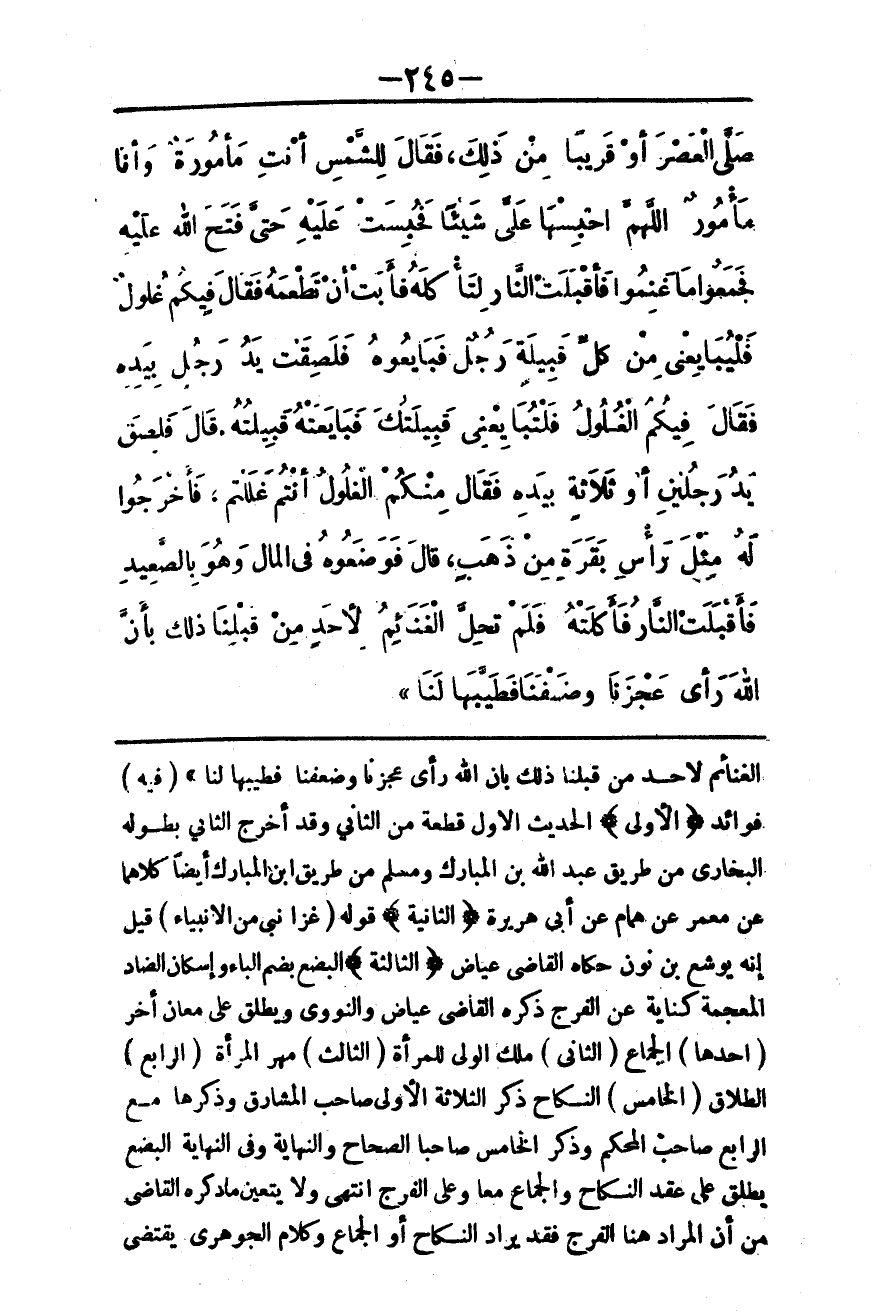 —٢٤٥—
صَلَّى الْعَصْرَ أَوْ قَرِيبًا مِنْ ذَلِكَ، فَقَالَ لِلشَّمْسِ أَنْتِ مَأْمُورَةٌ وَأَنَا
مَأْمُورٌ اللَّهُمَّ احْبِسْهَا عَلَىَّ شَيْئًا فَحُبِسَتْ عَلَيْهِ حَتَّى فَتَحَ اللهُ عَلَيْهِ
فَجَمَعُوا مَا غَنِمُوا فَأَقْبَلَتْ النَّارُ لِتَأْكُلَهُ فَأَبَتْ أَنْ تَطْعَمَهُ فَقَالَ فِيكُمْ غُلُولٌ
فَلْيُبَايِعْنِى مِنْ كُلِّ قَبِيلَةٍ رَجُلٌ فَبَايَعُوهُ فَلَصِقَتْ يَدُ رَجُلٍ بِيَدِهِ
فَقَالَ فِيكُمُ الْغُلُولُ فَلْتُبَايِعْنِى قَبِيلَتُكَ فَبَايَعَتْهُ قَبِيلَتُهُ. قَالَ فَلَصِقَ
يَدُ رَجُلَيْنِ أَوْ ثَلَاثَةٍ بِيَدِهِ فَقَالَ مِنْكُمْ الْغُلُولُ أَنْتُمْ غَلَلْتُمْ، فَأَخْرَجُوا
لَهُ مِثْلَ رَأْسِ بَقَرَةٍ مِنْ ذَهَبٍ، قَالَ فَوَضَعُوهُ فِى الْمَالِ وَهُوَ بِالصَّعِيدِ
فَأَقْبَلَتْ النَّارُ فَأَكَلَتْهُ فَلَمْ تَحِلَّ الْغَنَائِمُ لِأَحَدٍ مِنْ قَبْلِنَا ذَلِكَ بِأَنَّ
اللهَ رَأَى عَجْزَنَا وَضَعْفَنَا فَطَيَّبَهَا لَنَا »
الغنائم لاحد من قبلنا ذلك بان الله رأى عجزنا وضعفنا فطيبها لنا » ( فيه )
فوائد ﴿ الأولى ﴾ الحديث الاول قطعة من الثاني وقد أخرج الثاني بطوله
البخارى من طريق عبد الله بن المبارك ومسلم من طريق ابن المبارك أيضاً كلاهما
عن معمر عن همام عن أبى هريرة ﴿ الثانية ﴾ قوله ( غزا نبى من الانبياء ) قيل
إنه يوشع بن نون حكاه القاضى عياض ﴿ الثالثة ﴾ البضع بضم الباء وإسكان الضاد
المعجمة كناية عن الفرج ذكره القاضى عياض والنووى ويطلق على معان أخر
( احدها ) الجماع ( الثانى ) ملك الولى للمرأة ( الثالث ) مهر المرأة ( الرابع )
الطلاق ( الخامس ) النكاح ذكر الثلاثة الأولى صاحب المشارق وذكرها مع
الرابع صاحب المحكم وذكر الخامس صاحبا الصحاح والنهاية وفى النهاية البضع
يطلق على عقد النكاح والجماع معا وعلى الفرج انتهى ولا يتعين ماذكره القاضى
من أن المراد هنا الفرج فقد يراد النكاح أو الجماع وكلام الجوهرى يقتضى